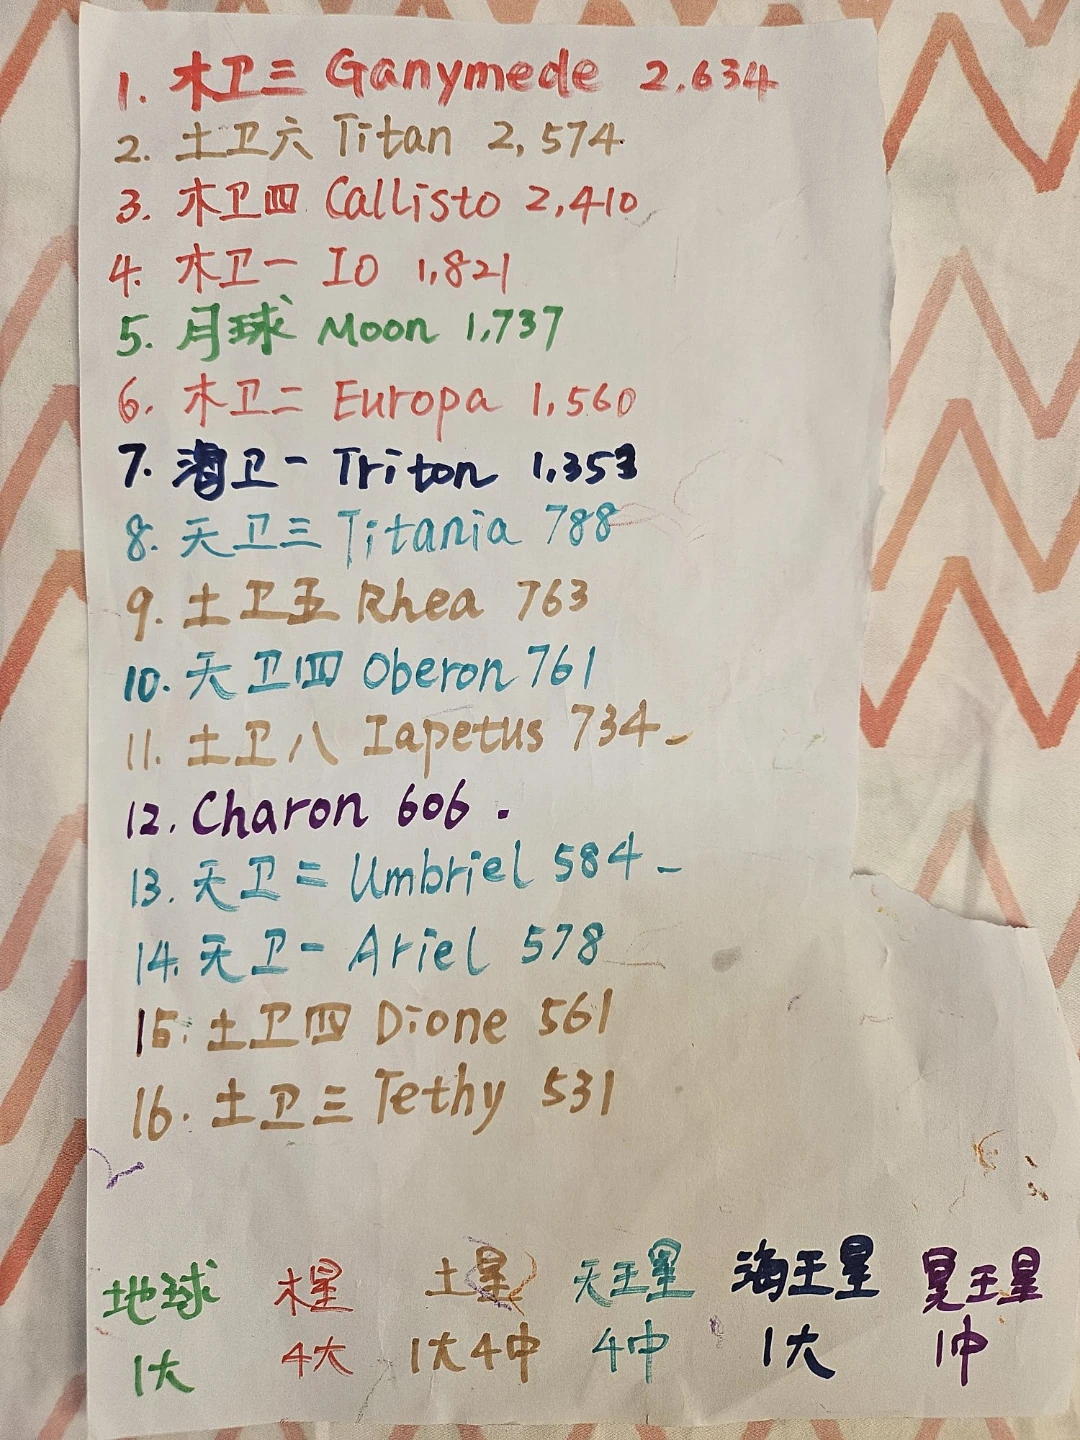 1. 木卫三 Ganymede 2.634
2. 土卫六 Titan 2,574
3. 木卫四 Callisto 2,410
4. 木卫一 IO 1,821
5. 月球 Moon 1,737
6. 木卫二 Europa 1,560
7. 海卫一 Triton 1,353
8. 天卫三 Titania 788
9. 土卫五 Rhea 763
10. 天卫四 Oberon 761
11. 土卫八 Iapetus 734
12. Charon 606.
13. 天卫二 Umbriel 584
14. 天卫一 Ariel 578
15. 土卫四 Dione 561
16. 土卫三 Tethy 531
地球 木星 土星 天王星 海王星 冥王星
1大 4大 1大4中 4中 1大 1中